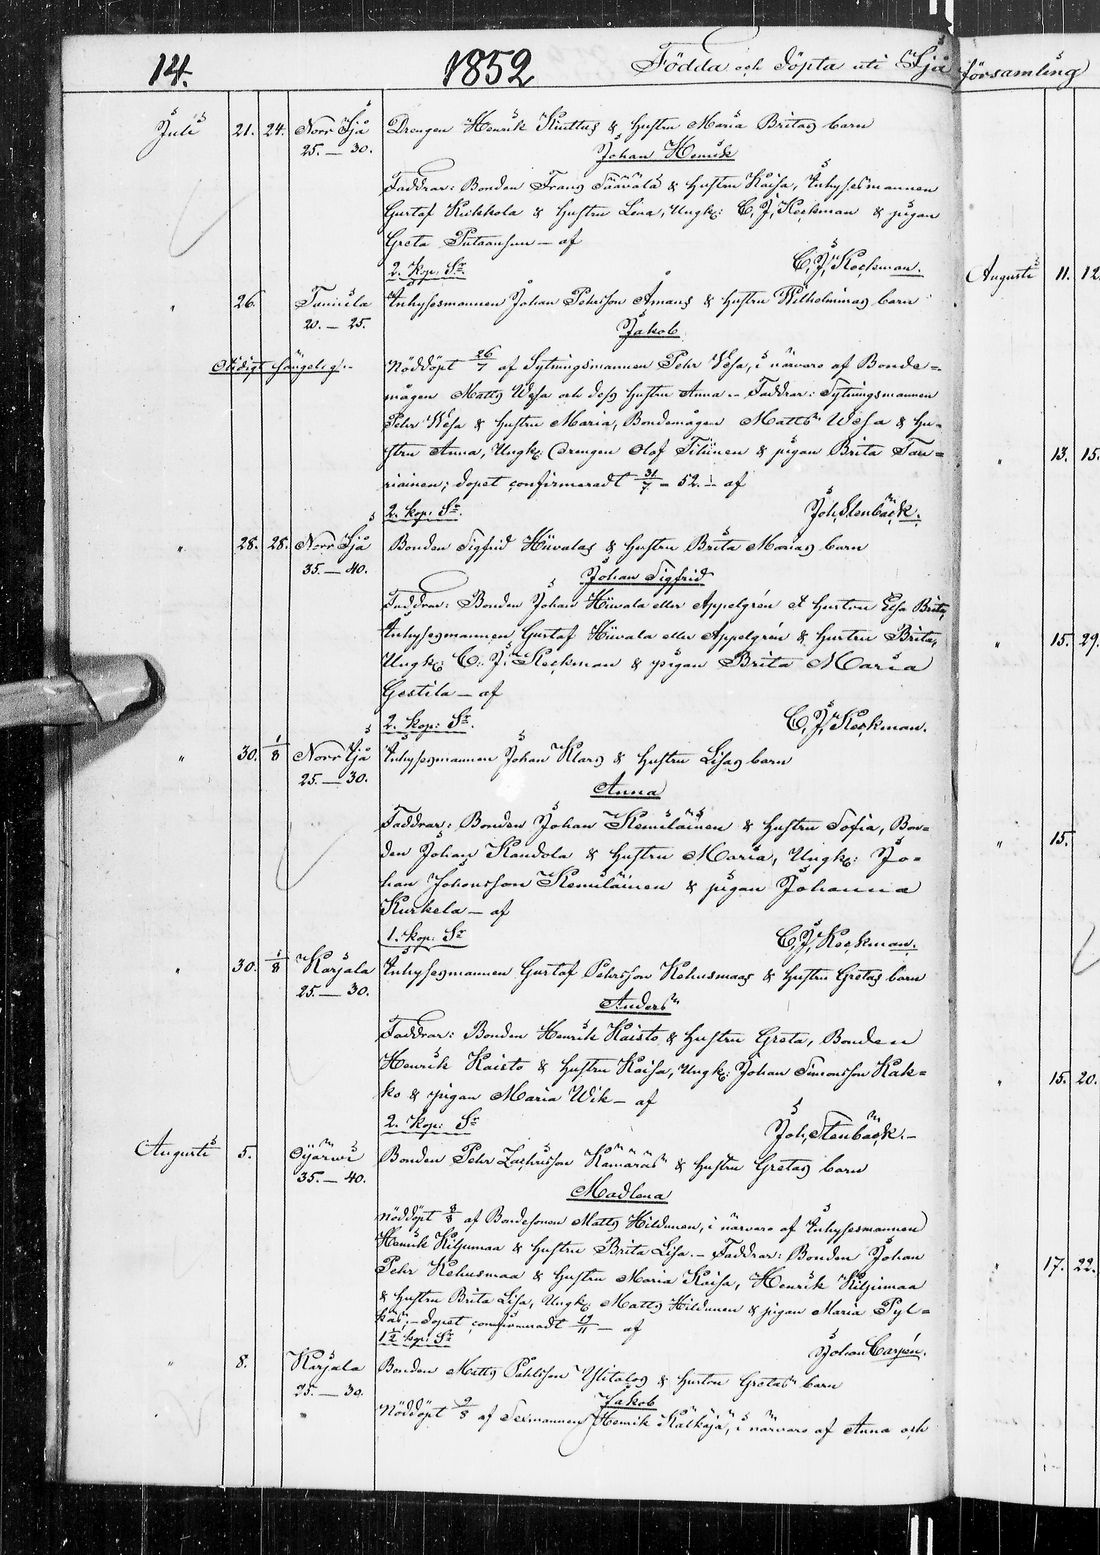 14. 1852 Födda och döpta uti Ijå församling
Juli 21. 24. Norr Ijå Drengen Henrik Kurttas & hustru Maria Britas barn
25.—30. Johan Henrik
Faddrar: Bonden Frans Säävälä & hustru Kaisa, Inhysesmannen
Gustaf Kukkola & hustru Lena, Ungk: C. J. Keckman & pigan
Greta — af
2. kop. Sr. C. J. Keckman.
" 26. Tannila Inhysesmannen Johan Pehrsson Åmans & hustru Wilhelminas barn
20.—25. Jakob
Nöddöpt 26/7 af Sytningsmannen Pehr Wesa, i närvaro af Bonde=
mågen Matts Wesa och dess hustru Anna.— Faddrar: Sytningsmannen
Pehr Wesa & hustru Maria, Bondemågen Matts Wesa & hu=
stru Anna, Ungk: Drengen Olof Tihinen & pigan Brita Tau=
riainen; dopet confirmeradt 31/7 — 52.— af
2. kop. Sr. Joh. Stenbäck.
" 28. 28. Norr Ijå Bonden Sigfrid Hiivalas & hustru Brita Marias barn
35.—40. Johan Sigfrid
Faddrar: Bonden Johan Hiivala eller Appelgrén & hustru Elsa Brita,
Inhysesmannen Gustaf Hiivala eller Appelgrén & hustru Brita,
Ungk: C. J. Keckman & pigan Brita Maria
Gestila — af
2. kop: Sr. C. J. Keckman.
" 30. 1/8 Norr Ijå Inhysesmannen Johan Klars & hustru Lisas barn
25.—30. Anna
Faddrar: Bonden Johan Kemiläinen & hustru Sofia, Bon=
den Johan Kandola & hustru Maria, Ungk: Jo=
han Johansson Kemiläinen & pigan Johanna
Kurkela — af
1. kop: Sr C. J. Keckman.
" 30. 1/8 Karjala Inhysesmannen Gustaf Pehrsson Kehusmaas & hustru Gretas barn
25.—30. Anders
Faddrar: Bonden Henrik Kaisto & hustru Greta, Bonden
Henrik Kaisto & hustru Kaisa, Ungk: Johan Simonsson Kak=
ko & pigan Maria Wik — af
2. kop: Sr Joh. Stenbäck.—
Augusti 5. Oijärwi Bonden Pehr Zachrisson Kämäräs & hustru Gretas barn
35.—40. Madlena
nöddöpt 8/8 af Bondesonen Matts Hildunen, i närvaro af Inhysesmannen
Henrik Kiljumaa & hustru Brita Lisa.— Faddrar: Bonden Johan
Pehr Kehusmaa & hustru Maria Kaisa, Henrik Kiljumaa
& hustru Brita Lisa, Ungk: Matts Hildunen & pigan Maria Pyl=
käs;— dopet confirmeradt — af
1½ kop: Sr Johan Carpén.
" 8. Karjala Bonden Matts Påhlsson Ylitalos & hustru Gretas barn
25.—30. Jakob
Nöddöpt 9/8 af Henrik i närvaro af Anna och
Augusti 11. 12.
" 13. 15.
" 15. 29.
" 15.
" 15. 20.
" 17. 22.